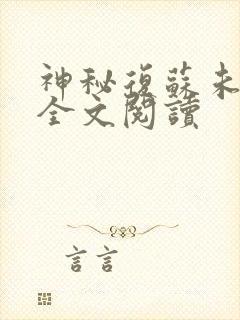 神秘復蘇未
全文閱讀
言言